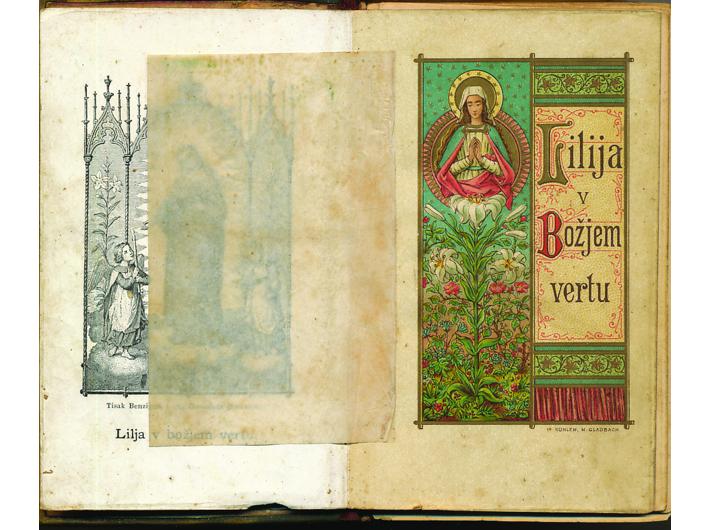 Tisak Benzi
Lilja v božjem vertu
Lilija
v
Božjem
vertu
B. KÜHLEN, M. GLADBACH.